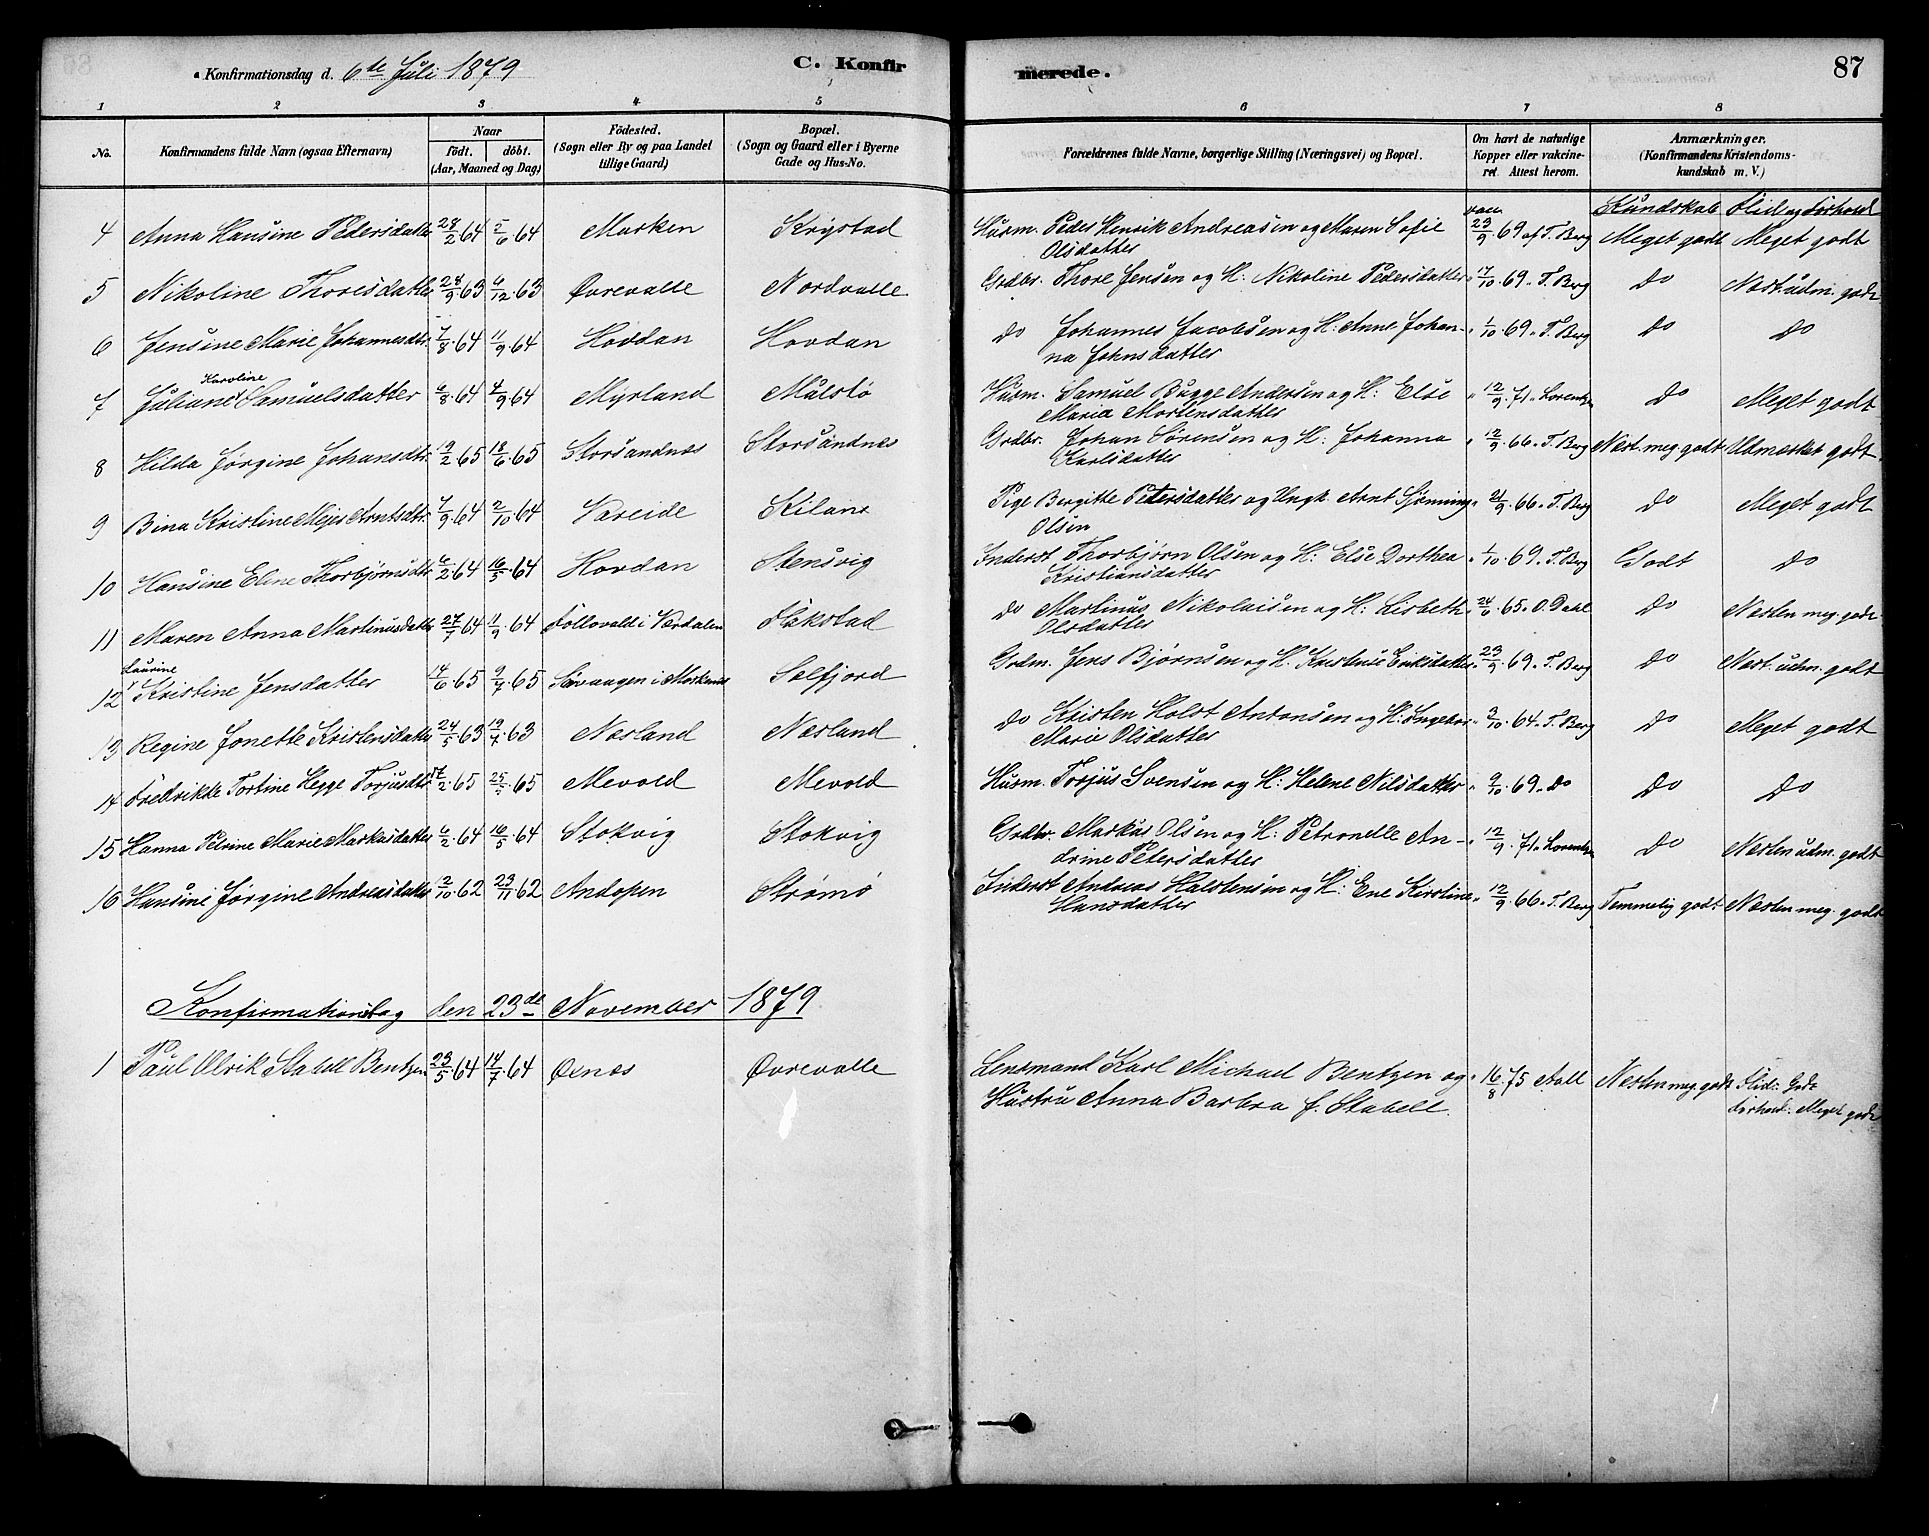 Konfirmationsdag d. 6te Juli 1879 C. Konfirmerede. 87
1 2 3 4 5 6 7 8
No. Konfirmandens fulde Navn (ogsaa Efternavn) Naar födt. döbt. (Aar, Maaned og Dag) Födested. (Sogn eller By og paa Landet tillige Gaard) Bopæl. (Sogn og Gaard eller i Byerne Gade og Hus-No. Forældrenes fulde Navne, borgerlige Stilling (Næringsvei) og Bopæl. Om havt de naturlige Kopper eller vakcineret. Attest herom. Anmærkninger. (Konfirmandens Kristendomskundskab m. V.)
Kundskab Flid og Forhold
4 Anna Hansine Pedersdatter 28/2 64 5/6 64 Marken Krystad Husm. Peder Henrik Andreasen og Maren Sofie vac. 23/9 69 af T. Berg Meget godt Meget godt
Olsdatter
5 Nikoline Thoresdatter 28/9 63 6/12 63 Øvrevalle Nordvalle Grdbr. Thore Jensen og H: Nikoline Pedersdatter " 17/10 69 " T. Berg do Næst. udm. godt
6 Jensine Marie Johannesdtr. 7/8 64 11/9 64 Hovdan Hovdan do Johannes Jacobsen og H: Anne Johan- " 1/10 69 " T. Berg do do
na Johnsdatter
7 Juliane Karoline Samuelsdatter 6/8 64 4/9 64 Myrland Målstø Husm. Samuel Bugge Andersen og H: Else " 12/9 71 " Lorentzen do Meget godt
Maria Mortensdatter
8 Hilda Jørgine Johansdtr. 19/2 65 18/6 65 Storsandnes Storsandnes Grdbr. Johan Sørensen og H: Johanna " 12/9 66 " T. Berg Næst. meg. godt Udmerket godt
Karlsdatter
9 Bina Kristine Mejer Arntsdtr. 7/9 64 2/10 64 Vareide Kilan Pige Bergitte Petersdatter og Ungk. Arnt Sjønning " 21/9 66 " T. Berg do Meget godt
Olsen
10 Hansine Eline Thorbjørnsdtr. 6/2 64 16/5 64 Hovdan Stensvig Inderst Thorbjørn Olsen og H: Else Dorthea " 1/10 69 " T. Berg Godt do
Kristiansdatter
11 Maren Anna Martinusdatter 27/7 64 11/9 64 Follovald i Værdalen Flakstad do Martinus Nikolaisen og H: Lisbeth " 24/6 65 " O. Dahl do Nesten meg. godt
Olsdatter
12 Laurine Kristine Jensdatter 14/6 65 9/7 65 Sørvaagen i Moskenes Selfjord Grdm. Jens Bjørnsen og H. Kristense Eriksdatter " 23/9 69 " T. Berg do Næst. udm. godt
13 Regine Jonette Kristensdatter 24/5 63 19/7 63 Nesland Nesland do Kristen Holst Antonsen og H: Ingebor " 9/10 64 " T. Berg do Meget godt
Marie Olsdatter
14 Fredrikke Tortine Hegge Torjusdtr. 17/2 65 25/5 65 Mevold Mevold Husm. Torjus Svensen og H: Helene Nilsdatter " 9/10 69 " do do do
15 Hanna Petrine Marie Markusdatter 6/2 64 16/5 64 Stokvig Stokvig Grdbr. Markus Olsen og H: Petronelle An- " 12/9 71 " Lorentzen do Nesten udm. godt
drine Petersdatter
16 Hansine Jørgine Andreasdatter 2/10 62 23/11 62 Andopen Strømø Inderst Andreas Halstensen og H: Ene Kirstine " 12/9 66 " T. Berg Temmelig godt Nesten meg. godt
Hansdatter
Konfirmationsdag den 23de November 1879
1 Paul Ulrik Stabell Bentzen 23/5 64 14/7 64 Øxnes Øvrevalle Lensmand Karl Michael Bentzen og " 16/8 75 Aall Nesten meg. godt Flid: Godt
Hustru Anna Barbra f. Stabell. Forhold: Meget godt